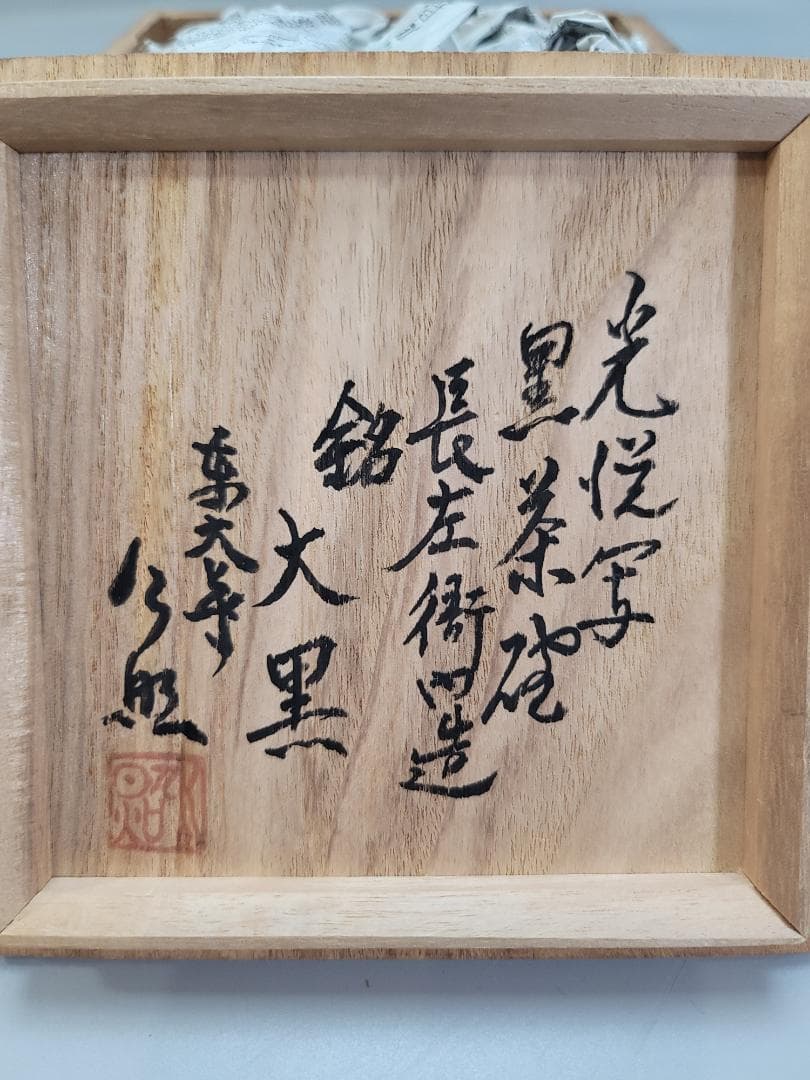 光悦写
黒茶碗
長左衛門造
銘
大黒
東大寺
公照